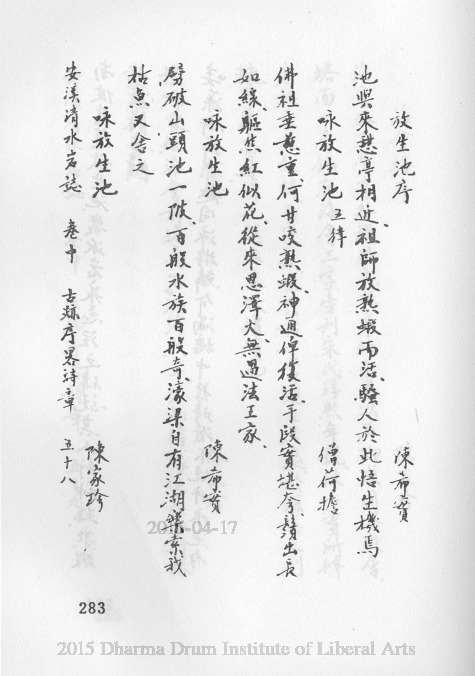 放生池序 陳希實
池與來憩亭相近、祖師放熟蝦而活、騷人於此悟生機焉
咏放生池 五律 僧荷擔
佛祖垂慈重、何甘咬熟蝦、神通俾復活、手段實堪夸、鬚出長
如線、軀焦紅似花、從來恩澤大、無過法王家、
咏放生池 陳希實
劈破山頭池一陂、百般水族百般奇、濠梁自有江湖樂、索我
枯魚又舍之
咏放生池 陳家珍
安溪清水岩誌 卷中 古跡序畧詩章 五十八
2015-04-17
283
2015 Dharma Drum Institute of Liberal Arts